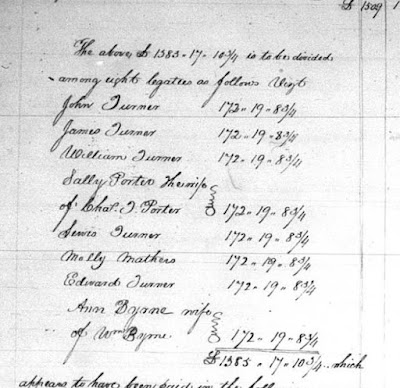 £ 1509
The above £ 1383 " 17 " 10 3/4 is to be divided
among eight legatees as follows Vizt
John Turner 172 " 19 " 8 3/4
James Turner 172 " 19 " 8 3/4
William Turner 172 " 19 " 8 3/4
Sally Porter the wife
of Chas. T. Porter 172 " 19 " 8 3/4
Lewis Turner 172 " 19 " 8 3/4
Molly Mathers 172 " 19 " 8 3/4
Edward Turner 172 " 19 " 8 3/4
Ann Byrne wife
of Wm Byrne 172 " 19 " 8 3/4
£ 1383 " 17 " 10 3/4 which
appears to have been paid in the